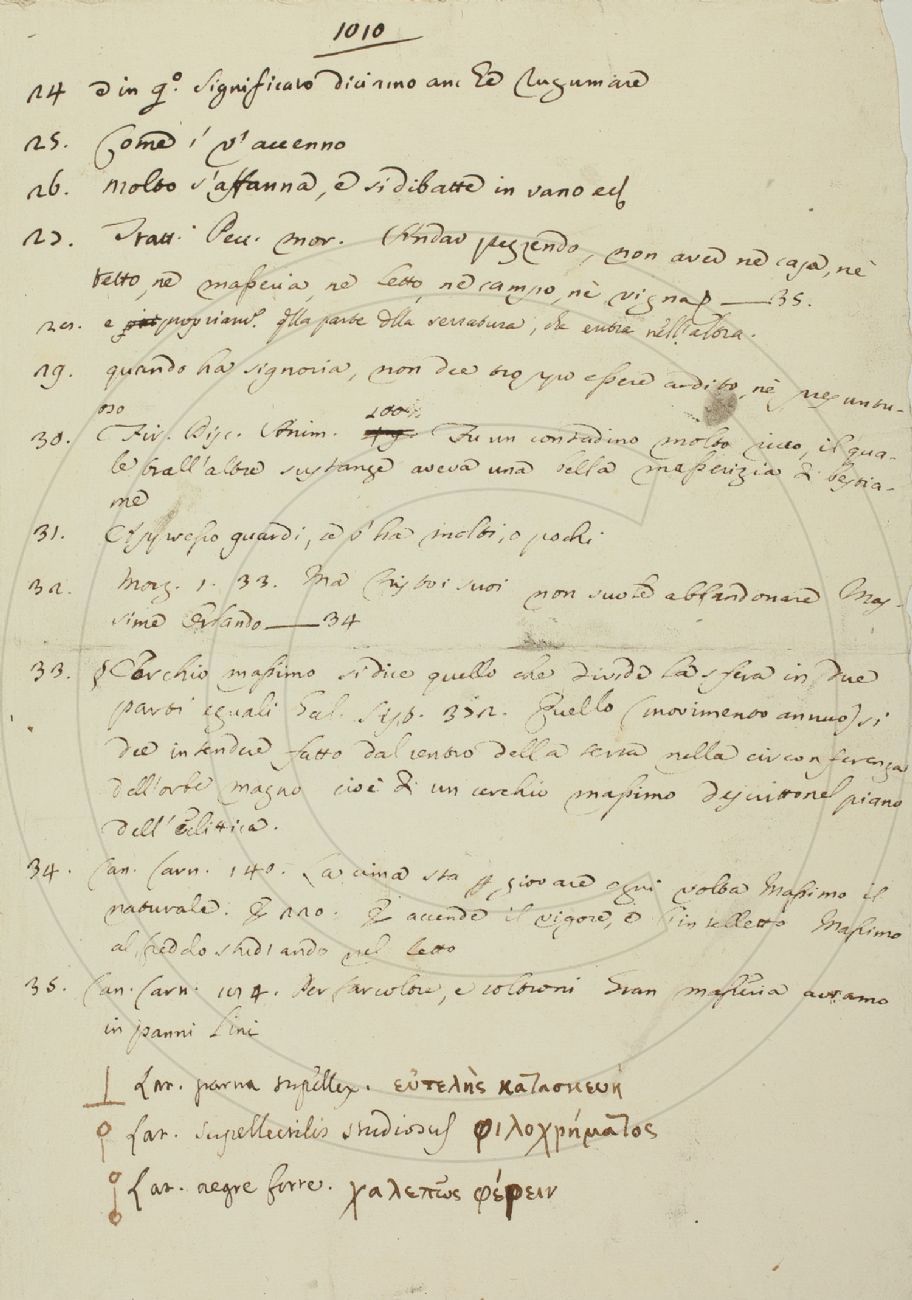 1010
24 e in q.o significato diciamo anche Rugumare
25. Come i' v' accenno
26. Molto s'affanna, e si dibatte in vano ec
27. Tratt. Pecc. mor. Andar pezzendo, non aver nè casa, nè
tetto, nè masseria, nè letto, nè campo, nè vigna — 35.
28. e propriam. q̄lla parte d̄lla serratura, che entra nell'altra.
29. quando ha signoria, non dee troppo essere ardito, nè presuntu-
oso
30. Fir. Disc. Anim. 100. Fu un contadino molto ricco, il qua-
le trall'altre sustanze aveva una bella masserizia di bestia-
me
31. Appresso guardi, se v' ha molti, o pochi
32. Morg. 1. 33. Ma Cristo i suoi non suole abbandonare Mas-
sime Orlando — 34
33. § Cerchio massimo si dice quello che divide la sfera in due
parti eguali Gal. Sist. 372. Quello (movimento annuo) si
dee intendere fatto dal centro della terra nella circonferenza
dell'orbe magno cioè di un cerchio massimo descritto nel piano
dell'Eclittica.
34. Can. Carn. 140. La cima sta p giovare ogni volta Massimo il
naturale. E 220. E accende il vigore, e l'intelletto Massimo
al freddo studiando nel letto
35. Can. Carn. 124. Per sarcoltre, e coltroni Gran masseria avvamo
in panni lini
Lat. parva supellex. εὐτελὴς κατασκευή
Lat. supellectilis studiosus φιλοχρήματος
Lat. aegre ferre. χαλεπῶς φέρειν